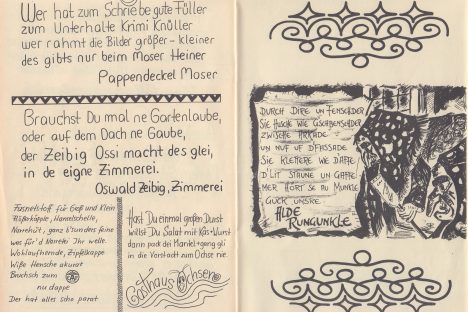 Wer hat zum Schriebe gute Füller
zum Unterhalte Krimi Knüller
wer rahmt die Bilder größer - kleiner
des gibts nur beim Moser Heiner
Pappendeckel Moser
Brauchst Du mal ne Gartenlaube,
oder auf dem Dach ne Gaube,
der Zeibig Ossi macht des glei,
in de eigne Zimmerei.
Oswald Zeibig, Zimmerei
Fasnetstoff für Groß und Klein
Hanselschelle,
Narrehüt, ganz b'sunders feine
wes für'd Narreti Ihr welle.
Wohlaufhernde, Zipfelkappe
Wiße Hemsche akurat
Bruchsch zum
nu dappe
Der hat alles scho parat
Hast Du einmal großen Durst
willst Du Salat mit Käs + Wurst
dann pack dei Mantel + gang glei
in die Vorstadt zum Ochse nei.
Gasthaus Ochsen
DURCH DIPE UN FENSCHDER
SIE HUSCHE WIE GSCHBENSCHDER
ZWISCHE ARKADE
UN NUF UF D'FASSADE
SIE KLETTERE WE D'AFFE
D'LIT STAUNE UN GAFFE
MER HÖRT SE AU MUNKLE
GUCK UNSRE
ALDE
RUNGUNKLE